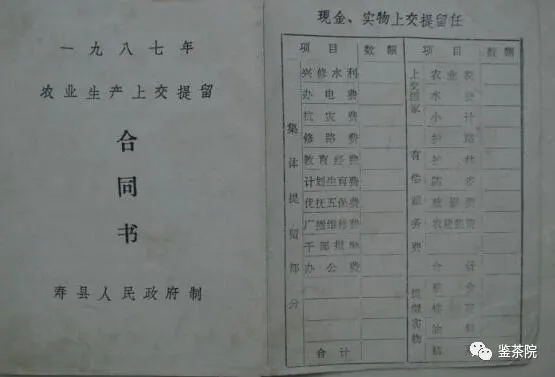 一九八七年
农业生产上交提留
合
同
书
寿县人民政府制
现金、实物上交提留任
项目 数额 项目 数额
集体提留部分
兴修水利
办电费
抗灾费
修路费
教育经费
计划生育费
优抚五保费
广播维修费
干部报酬
办公费
合计
上交国家
农业税
水费
小计
有偿服务费
护路
护林
防疫
合计
提留实物
鉴茶院